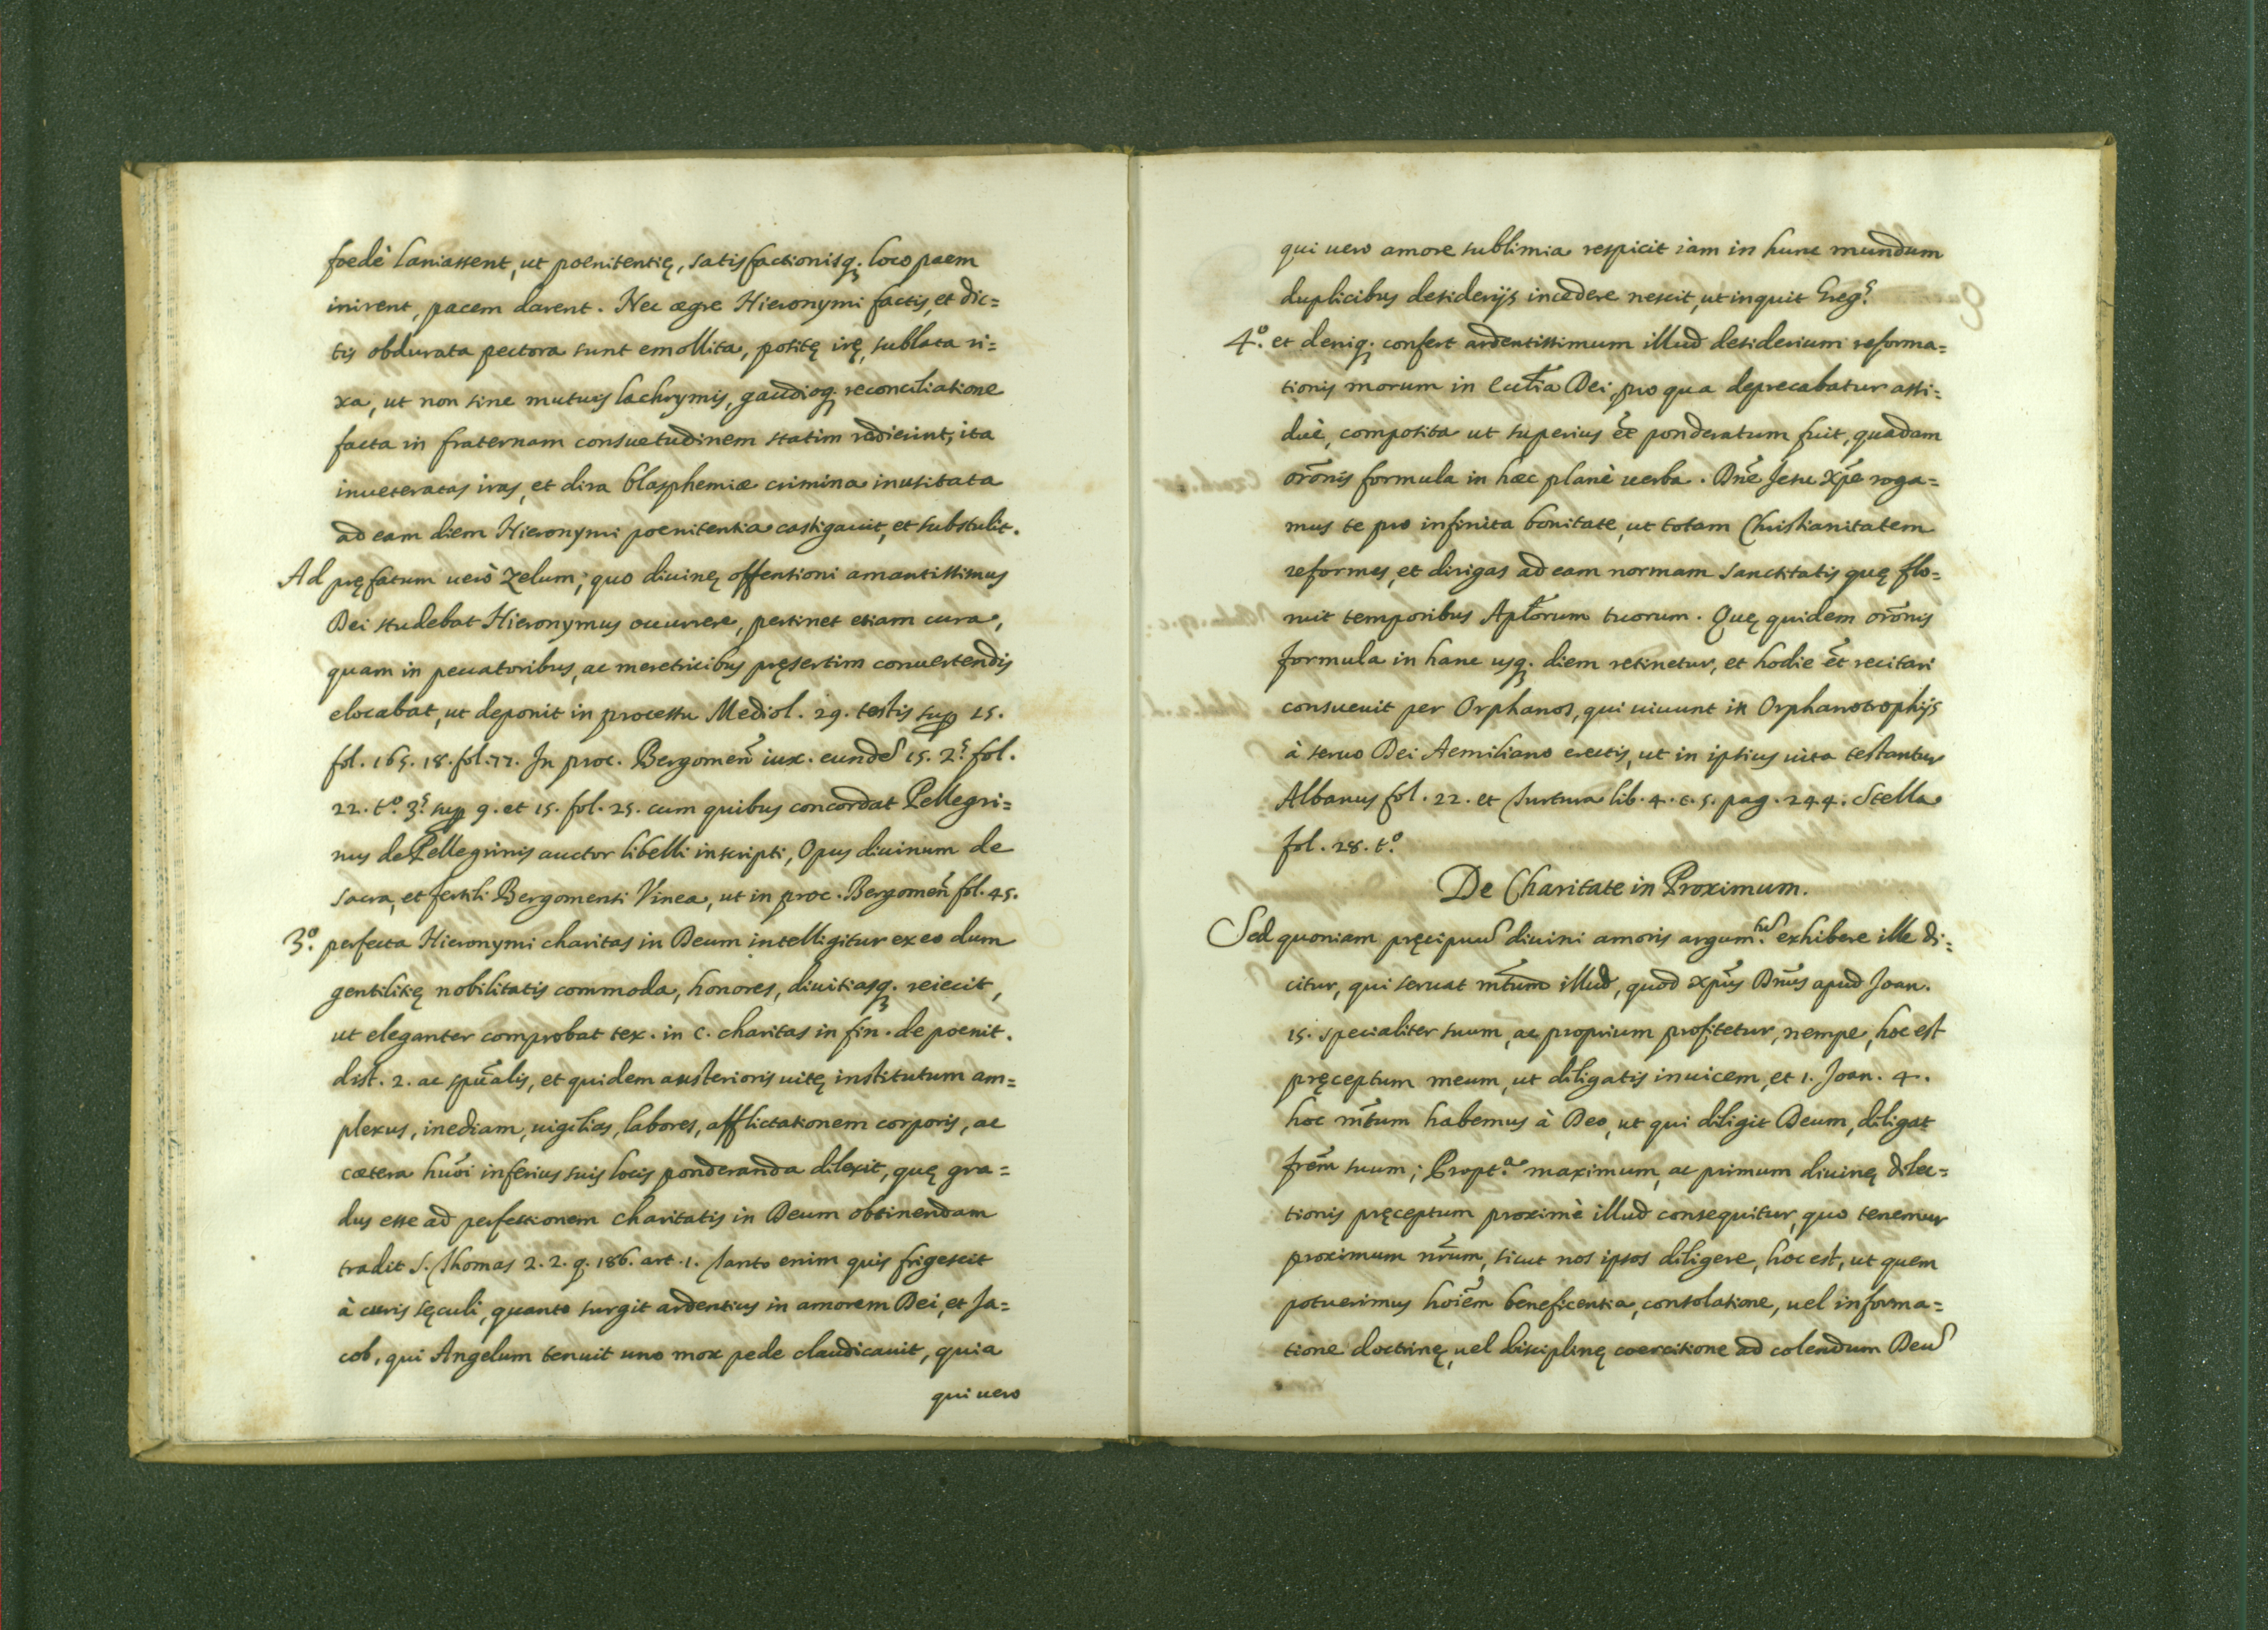 foedè laniassent, ut poenitentię, satisfactionisq. loco pacem
inirent, pacem darent. Nec ægre Hieronymi factis, et dic=
tis obdurata pectora sunt emollita, positę irę, sublata ri=
xa, ut non sine mutuis lachrymis, gaudioq. reconciliatione
facta in fraternam consuetudinem statim redierint, ita
inveteratas iras, et dira blasphemiæ crimina inusitata
ad eam diem Hieronymi poenitentia castigauit, et substulit.
Ad pręfatum uerò zelum, quo diuinę offensioni amantissimus
Dei studebat Hieronymus occurrere, pertinet etiam cura,
quam in peccatoribus, ac meretricibus pręsertim conuertendis
elocabat, ut deponit in processu Mediol. 29. testis sup 15.
fol. 165. 18. fol. 77. In proc. Bergomen̄ iux. eundē 15. 2.ˢ fol.
22. t.º 3.ˢ sup 9. et 15. fol. 25. cum quibus concordat Pellegri=
nus de Pellegrinis auctor libelli inscripti, Opus diuinum de
sacra, et fertili Bergomensi Vinea, ut in proc. Bergomen̄ fol. 45.
3.º perfecta Hieronymi charitas in Deum intelligitur ex eo dum
gentilitię nobilitatis commoda, honores, diuitiasq. reiecit,
ut eleganter comprobat tex. in c. charitas in fin. de poenit.
dist. 2. ac spūalis, et quidem austerioris uitę institutum am=
plexus, inediam, uigilias, labores, afflictationem corporis, ac
cætera hūoi inferius suis locis ponderanda dilexit, quę gra=
dus esse ad perfectionem charitatis in Deum obtinendam
tradit S. Thomas 2. 2. q. 186. art. 1. Tanto enim quis frigescit
à curis sęculi, quanto surgit ardentius in amorem Dei, et Ja=
cob, qui Angelum tenuit uno mox pede claudicauit, quia
qui uero
qui uero amore sublimia respicit iam in hunc mundum
duplicibus desiderijs incedere nescit, ut inquit Greg.ˢ
4.º et deniq. confert ardentissimum illud desiderium reforma=
tionis morum in Ecclīa Dei, pro qua deprecabatur assi=
duè, composita ut superius ēt ponderatum fuit, quadam
orōnis formula in hæc planè uerba. Dnē Jesu Xpē roga=
mus te pro infinita bonitate, ut totam Christianitatem
reformes, et dirigas ad eam normam sanctitatis quę flo=
ruit temporibus Aplōrum tuorum. Quę quidem orōnis
formula in hanc usq. diem retinetur, et hodie ēt recitari
consueuit per Orphanos, qui uiuunt in Orphanotrophijs
à seruo Dei Aemiliano erectis, ut in ipsius uita testantur
Albanus fol. 22. et Turtura lib. 4. c. 5. pag. 244. Stella
fol. 28. t.º
De Charitate in Proximum.
Sed quoniam pręcipuū diuini amoris argum.ᵗᵘ̄ exhibere ille di=
citur, qui seruat mn̄tum illud, quod xpūs Dnūs apud Joan.
15. specialiter suum, ac proprium profitetur, nempe, hoc est
pręceptum meum, ut diligatis inuicem, et 1. Joan. 4.
hoc mn̄tum habemus à Deo, ut qui diligit Deum, diligat
frēm suum; Propt.ᵃ maximum, ac primum diuinę dilec=
tionis pręceptum proximè illud consequitur, quo tenemur
proximum nr̄um, sicut nos ipsos diligere, hoc est, ut quem
potuerimus hoiēm beneficentia, consolatione, uel informa=
tione doctrinę, uel disciplinę coercitione ad colendum Deū